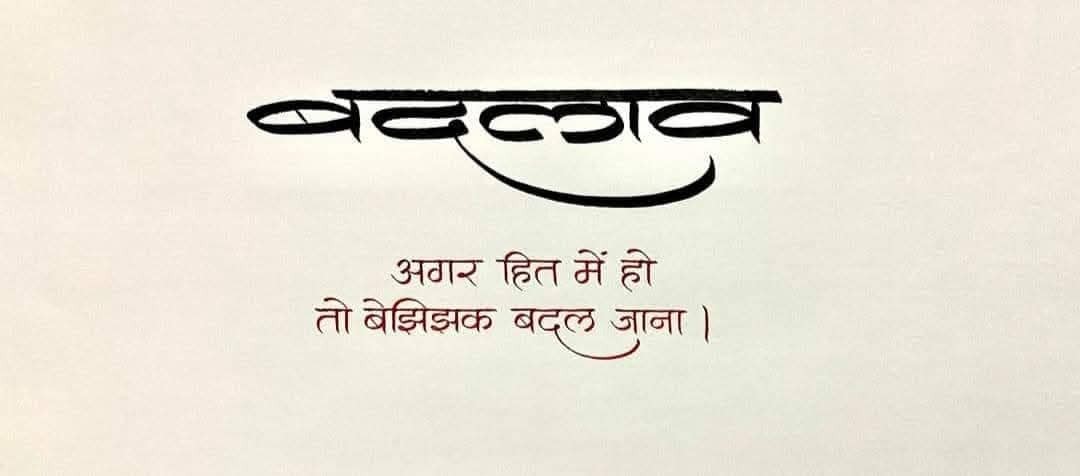 बदलाव
अगर हित में हो
तो बेझिझक बदल जाना।